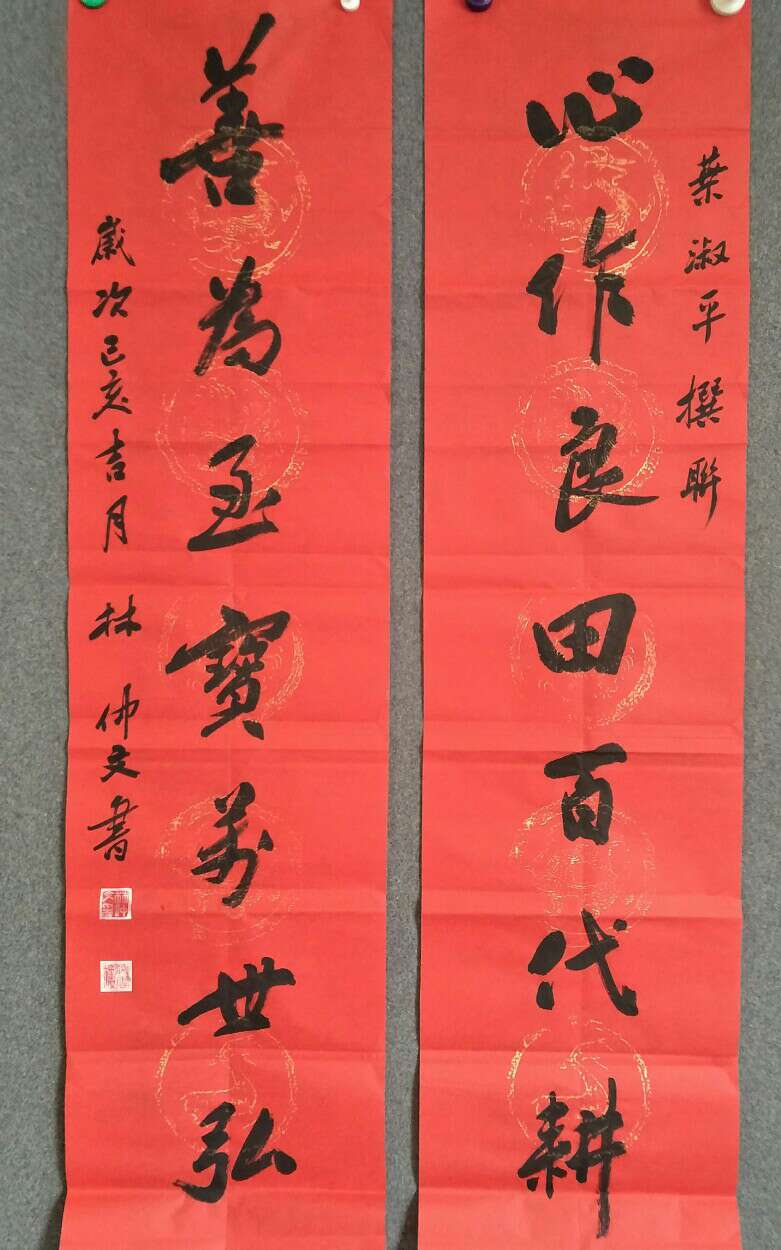 葉淑平撰聯
心作良田百代耕
善為至寶萬世弘
歲次己亥吉月 林仲文書